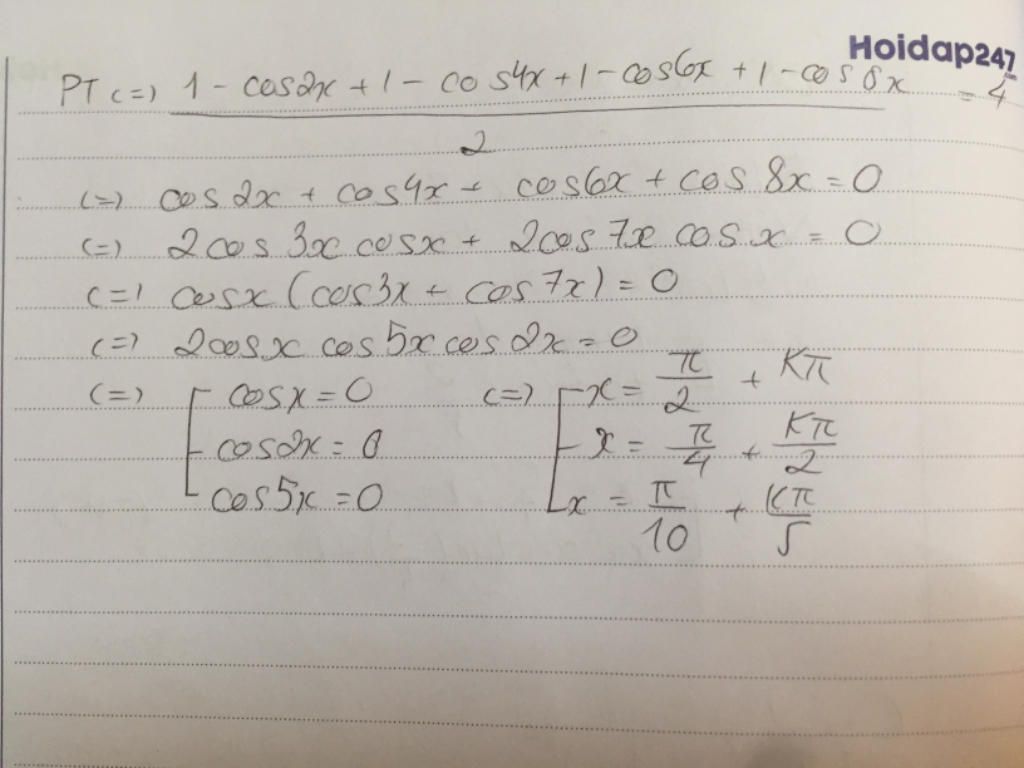 Hoidap247
.com
PT <=> 1 - cos2x + 1 - cos4x + 1 - cos6x + 1 - cos 8x = 4
2
<=> cos 2x + cos4x + cos6x + cos 8x = 0
<=> 2cos 3x cosx + 2cos 7x cos x = 0
<=> cosx (cos3x + cos 7x) = 0
<=> 2cosx cos5x cos 2x = 0
<=> cosx = 0 <=> x = π/2 + Kπ
cos2x = 0 x = π/4 + Kπ/2
cos5x = 0 x = π/10 + Kπ/5